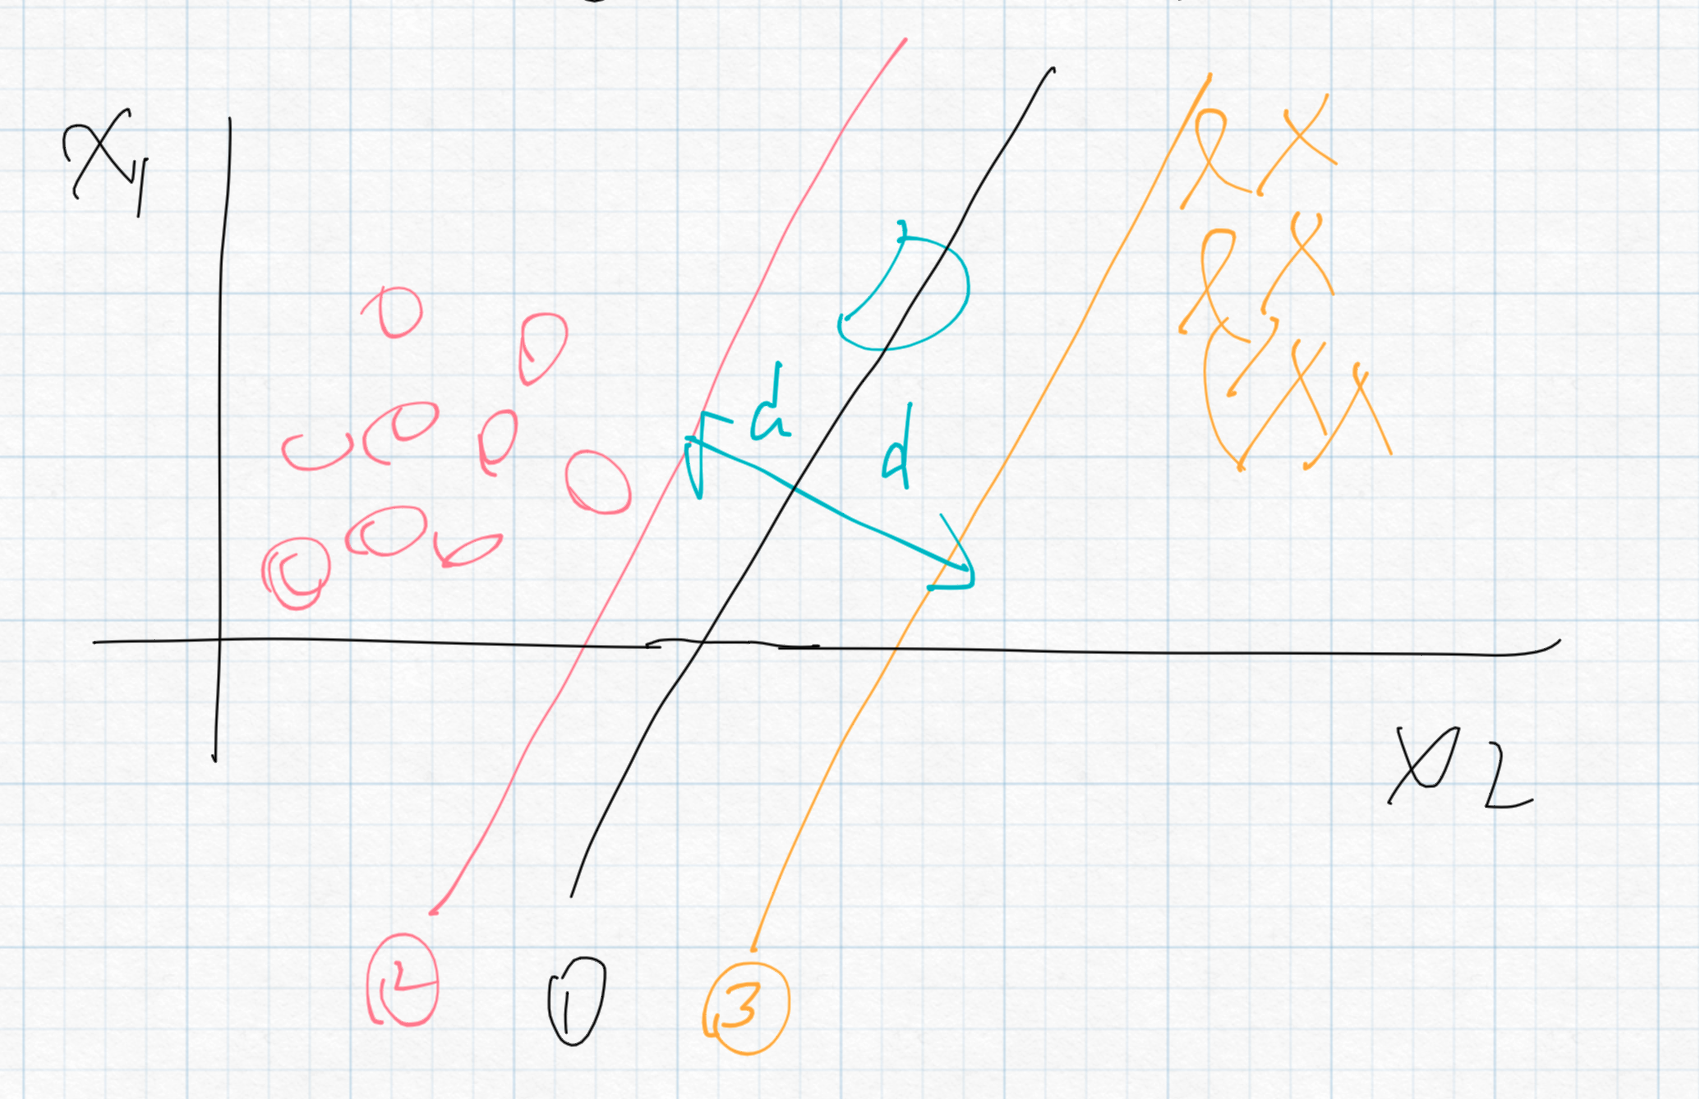 x1
D
d
d
x2
2 1 3